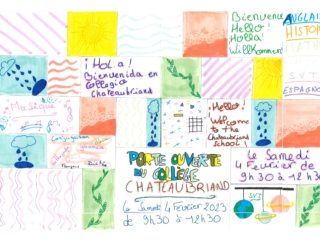 Bienvenue
Hello!
Holla!
Willkommen
ANGLAIS
HISTOI
¡Hola!
Bienvenida en
Collegio
Chateaubriand
SVT
ESPAGNOL
Musique
¡Hello!
Welcome
to the
Chateaubriand
School!
PORTE OUVERTE
DU COLLÈGE
CHATEAUBRIAND
le Samedi 4 Février 2023
de 9h30 à 12h30
le Samedi
4 Février de
9h30 à 12h30